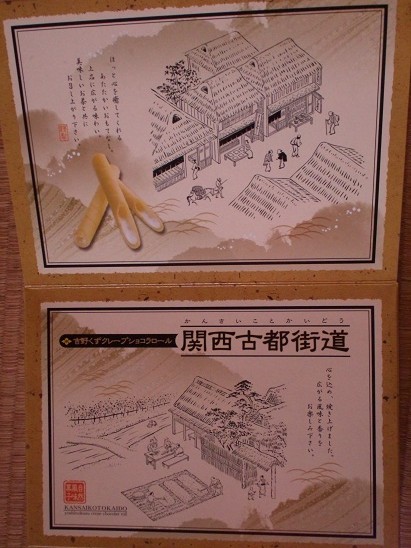 ほっと心を癒してくれる
あたたかいおもてなし。
上品に広がる味わい、
美味しいお茶と共に
お召し上がり下さい。
かんさいことかいどう
吉野くずクレープショコラロール
関西古都街道
心を込め、焼き上げました。
広がる風味と香りを
お楽しみ下さい。
KANSAIKOTOKAIDO